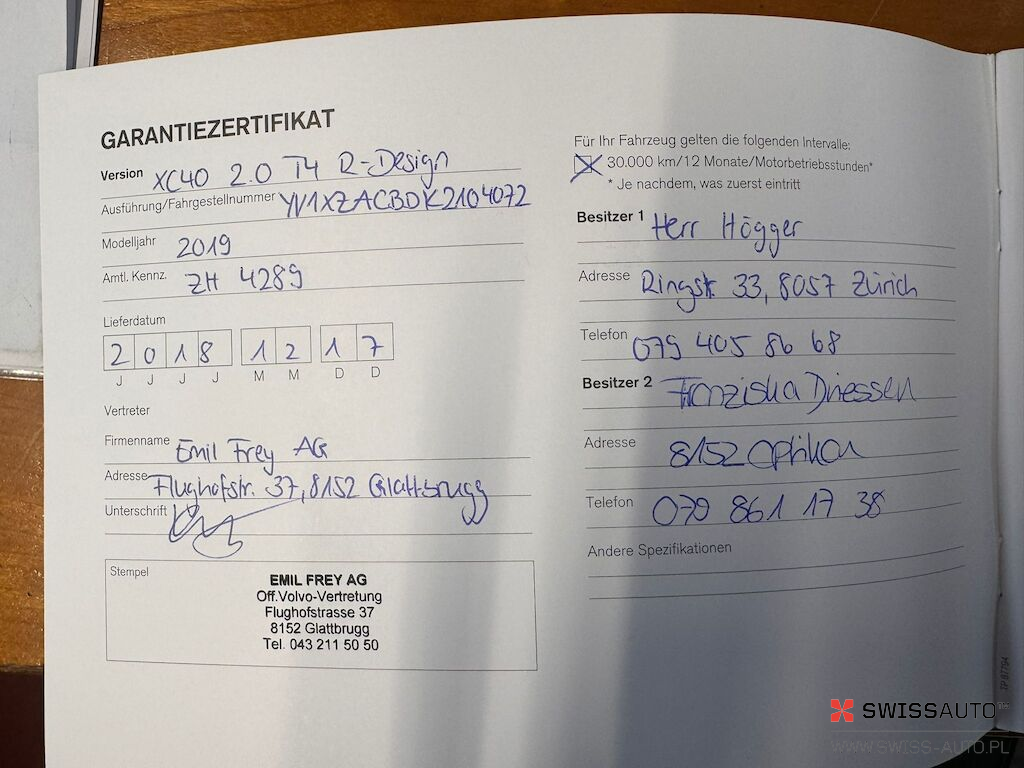 GARANTIEZERTIFIKAT
Version XC40 2.0 T4 R-Design
Ausführung/Fahrgestellnummer YV1XZACBDK2104072
Modelljahr 2019
Amtl. Kennz. ZH 4289
Lieferdatum
2 0 1 8 1 2 1 7
J J J J M M D D
Vertreter
Firmenname Emil Frey AG
Adresse Flughofstr. 37, 8152 Glattbrugg
Unterschrift
Stempel
EMIL FREY AG
Off.Volvo-Vertretung
Flughofstrasse 37
8152 Glattbrugg
Tel. 043 211 50 50
Für Ihr Fahrzeug gelten die folgenden Intervalle:
30.000 km/12 Monate/Motorbetriebsstunden*
* Je nachdem, was zuerst eintritt
Besitzer 1 Herr Högger
Adresse Ringstr. 33, 8057 Zürich
Telefon 079 405 86 68
Besitzer 2 Franziska Driessen
Adresse 8152 Opfikon
Telefon 079 861 17 38
Andere Spezifikationen
TP 87794
SWISSAUTO
WWW.SWISS-AUTO.PL